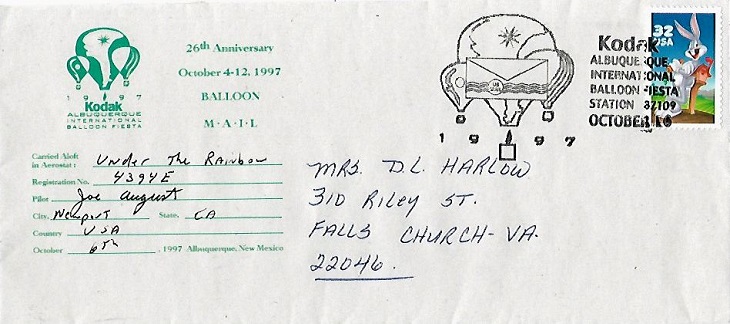 1997
Kodak
ALBUQUERQUE
INTERNATIONAL
BALLOON FIESTA
26th Anniversary
October 4-12, 1997
BALLOON
M·A·I·L
Carried Aloft
in Aerostat: Under The Rainbow
Registration No. 4394E
Pilot Joe August
City, Newport State, CA
Country USA
October 6th, 1997 Albuquerque, New Mexico
1997
Kodak
ALBUQUERQUE
INTERNATIONAL
BALLOON FIESTA
STATION 87109
OCTOBER 10
32
USA
MRS. D.L. HARLOW
310 RILEY ST.
FALLS CHURCH-VA.
22046.